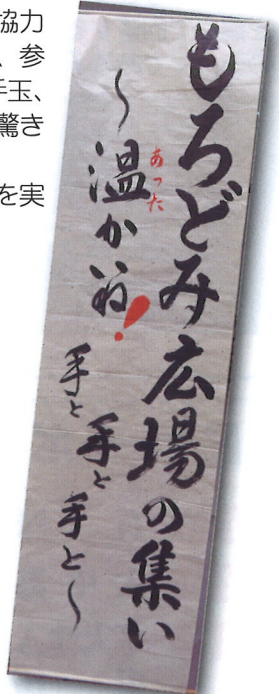 協力
、参
手玉、
驚き
を実
もろどみ広場の集い
～温かいね！
あった
手と手と手と～